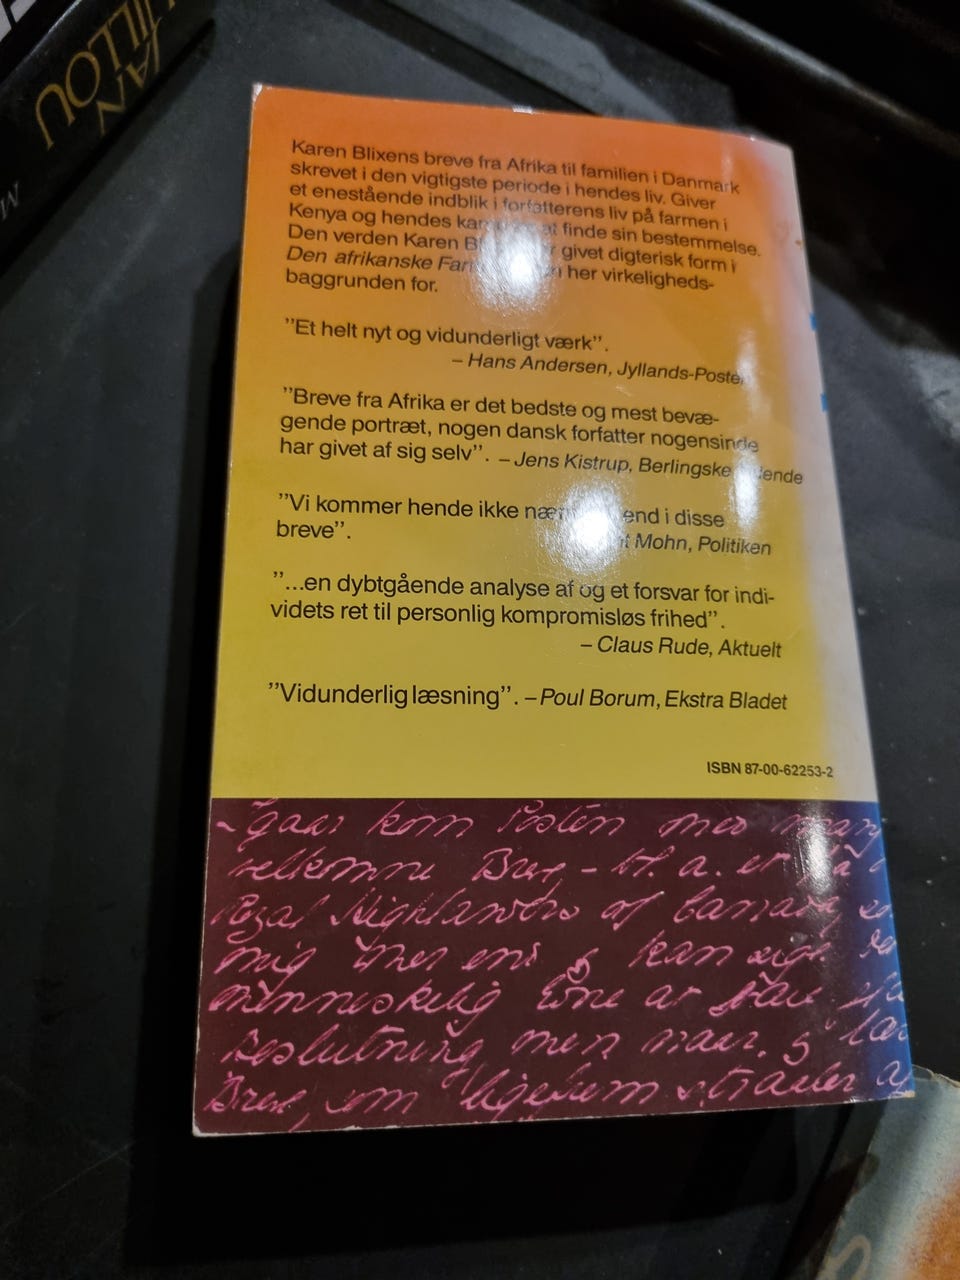 JAN
GUILLOU
Karen Blixens breve fra Afrika til familien i Danmark
skrevet i den vigtigste periode i hendes liv. Giver
et enestående indblik i forfatterens liv på farmen i
Kenya og hendes at finde sin bestemmelse.
Den verden Karen givet digterisk form i
Den afrikanske her virkeligheds-
baggrunden for.
"Et helt nyt og vidunderligt værk".
– Hans Andersen, Jyllands-Posten
"Breve fra Afrika er det bedste og mest bevæ-
gende portræt, nogen dansk forfatter nogensinde
har givet af sig selv". – Jens Kistrup, Berlingske
"Vi kommer hende ikke end i disse
breve".
Mohn, Politiken
"...en dybtgående analyse af og et forsvar for indi-
videts ret til personlig kompromisløs frihed".
– Claus Rude, Aktuelt
"Vidunderlig læsning". – Poul Borum, Ekstra Bladet
ISBN 87-00-62253-2
kom Posten med
velkomne Breve – bl. a. et fra
Royal Highlanders of Canada
mig kan
menneskelig Evne at
Beslutning, men naar
Breve, som ligesom straaler